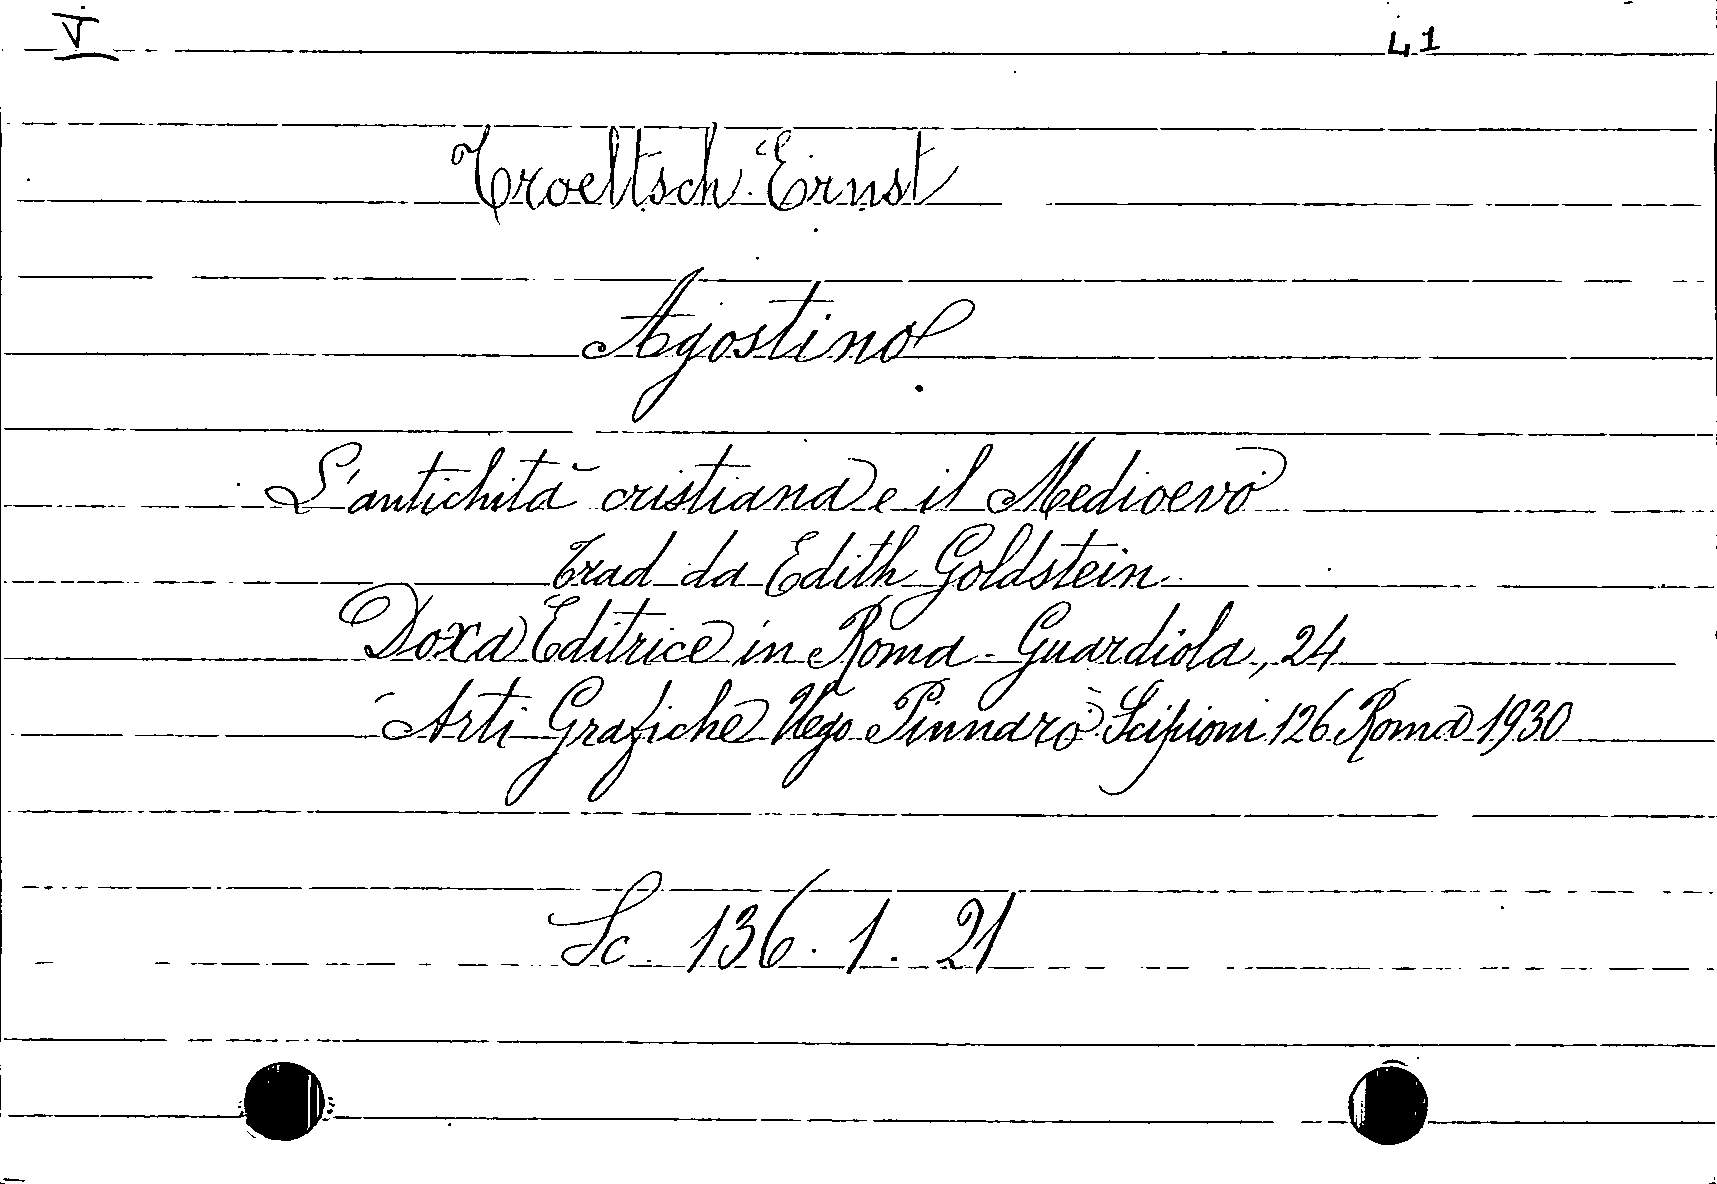 V 41
Troeltsch Ernst
Agostino
L'antichità cristiana e il Medioevo
Trad da Edith Goldstein
Doxa Editrice in Roma - Guardiola, 24
Arti Grafiche Ugo Pinnarò Scipioni 126 Roma 1930
Sc. 136. 1. 21